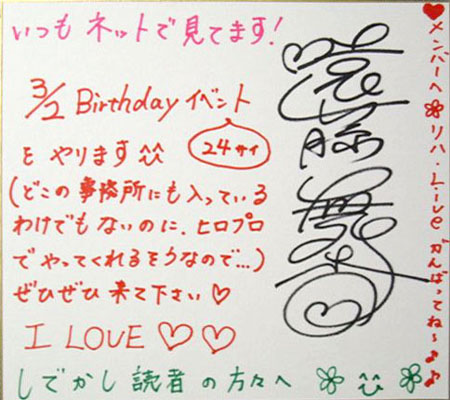 いつも ネットで 見てます!
3/2 Birthday イベント
24サイ
を やります
(どこの 事務所にも 入っている
わけでも ないのに、ヒロプロ
で やってくれる そうなので…)
ぜひぜひ 来て 下さい♡
I LOVE ♡♡
しでかし 読者 の 方々へ
♥メンバーへ リハ・Live がんばってね〜♪♪